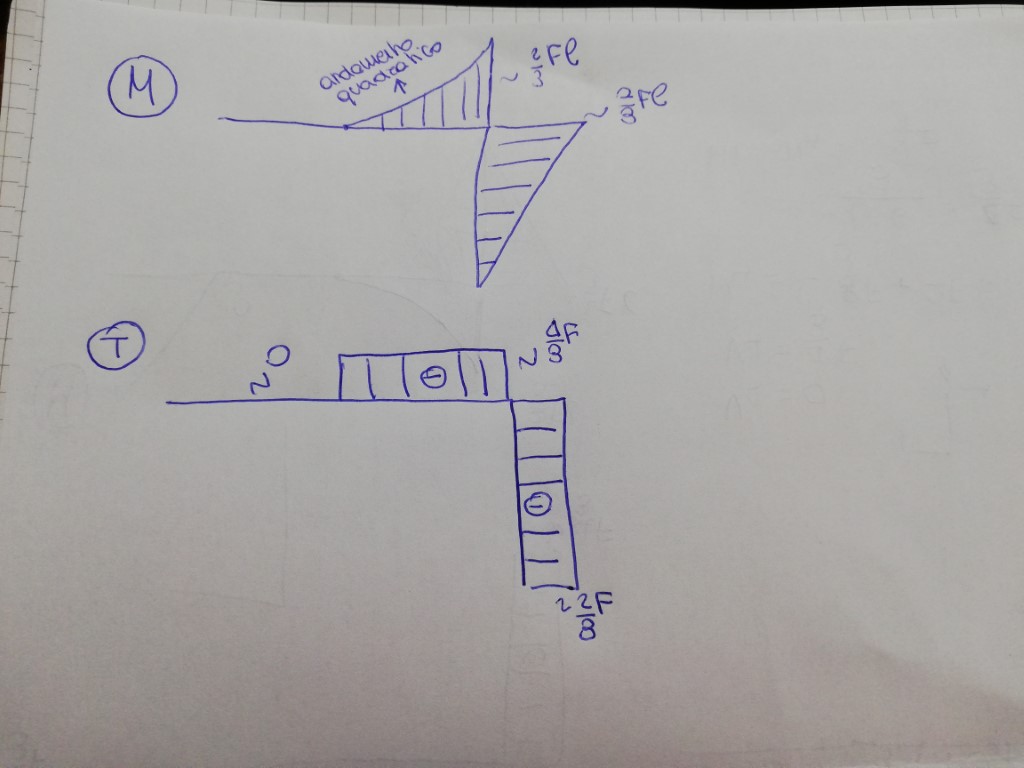 M
andamento
quadratico
~ 2/3 Fl
~ 2/8 Fl
T
~ 0
~ 4F/8
~ 2F/8